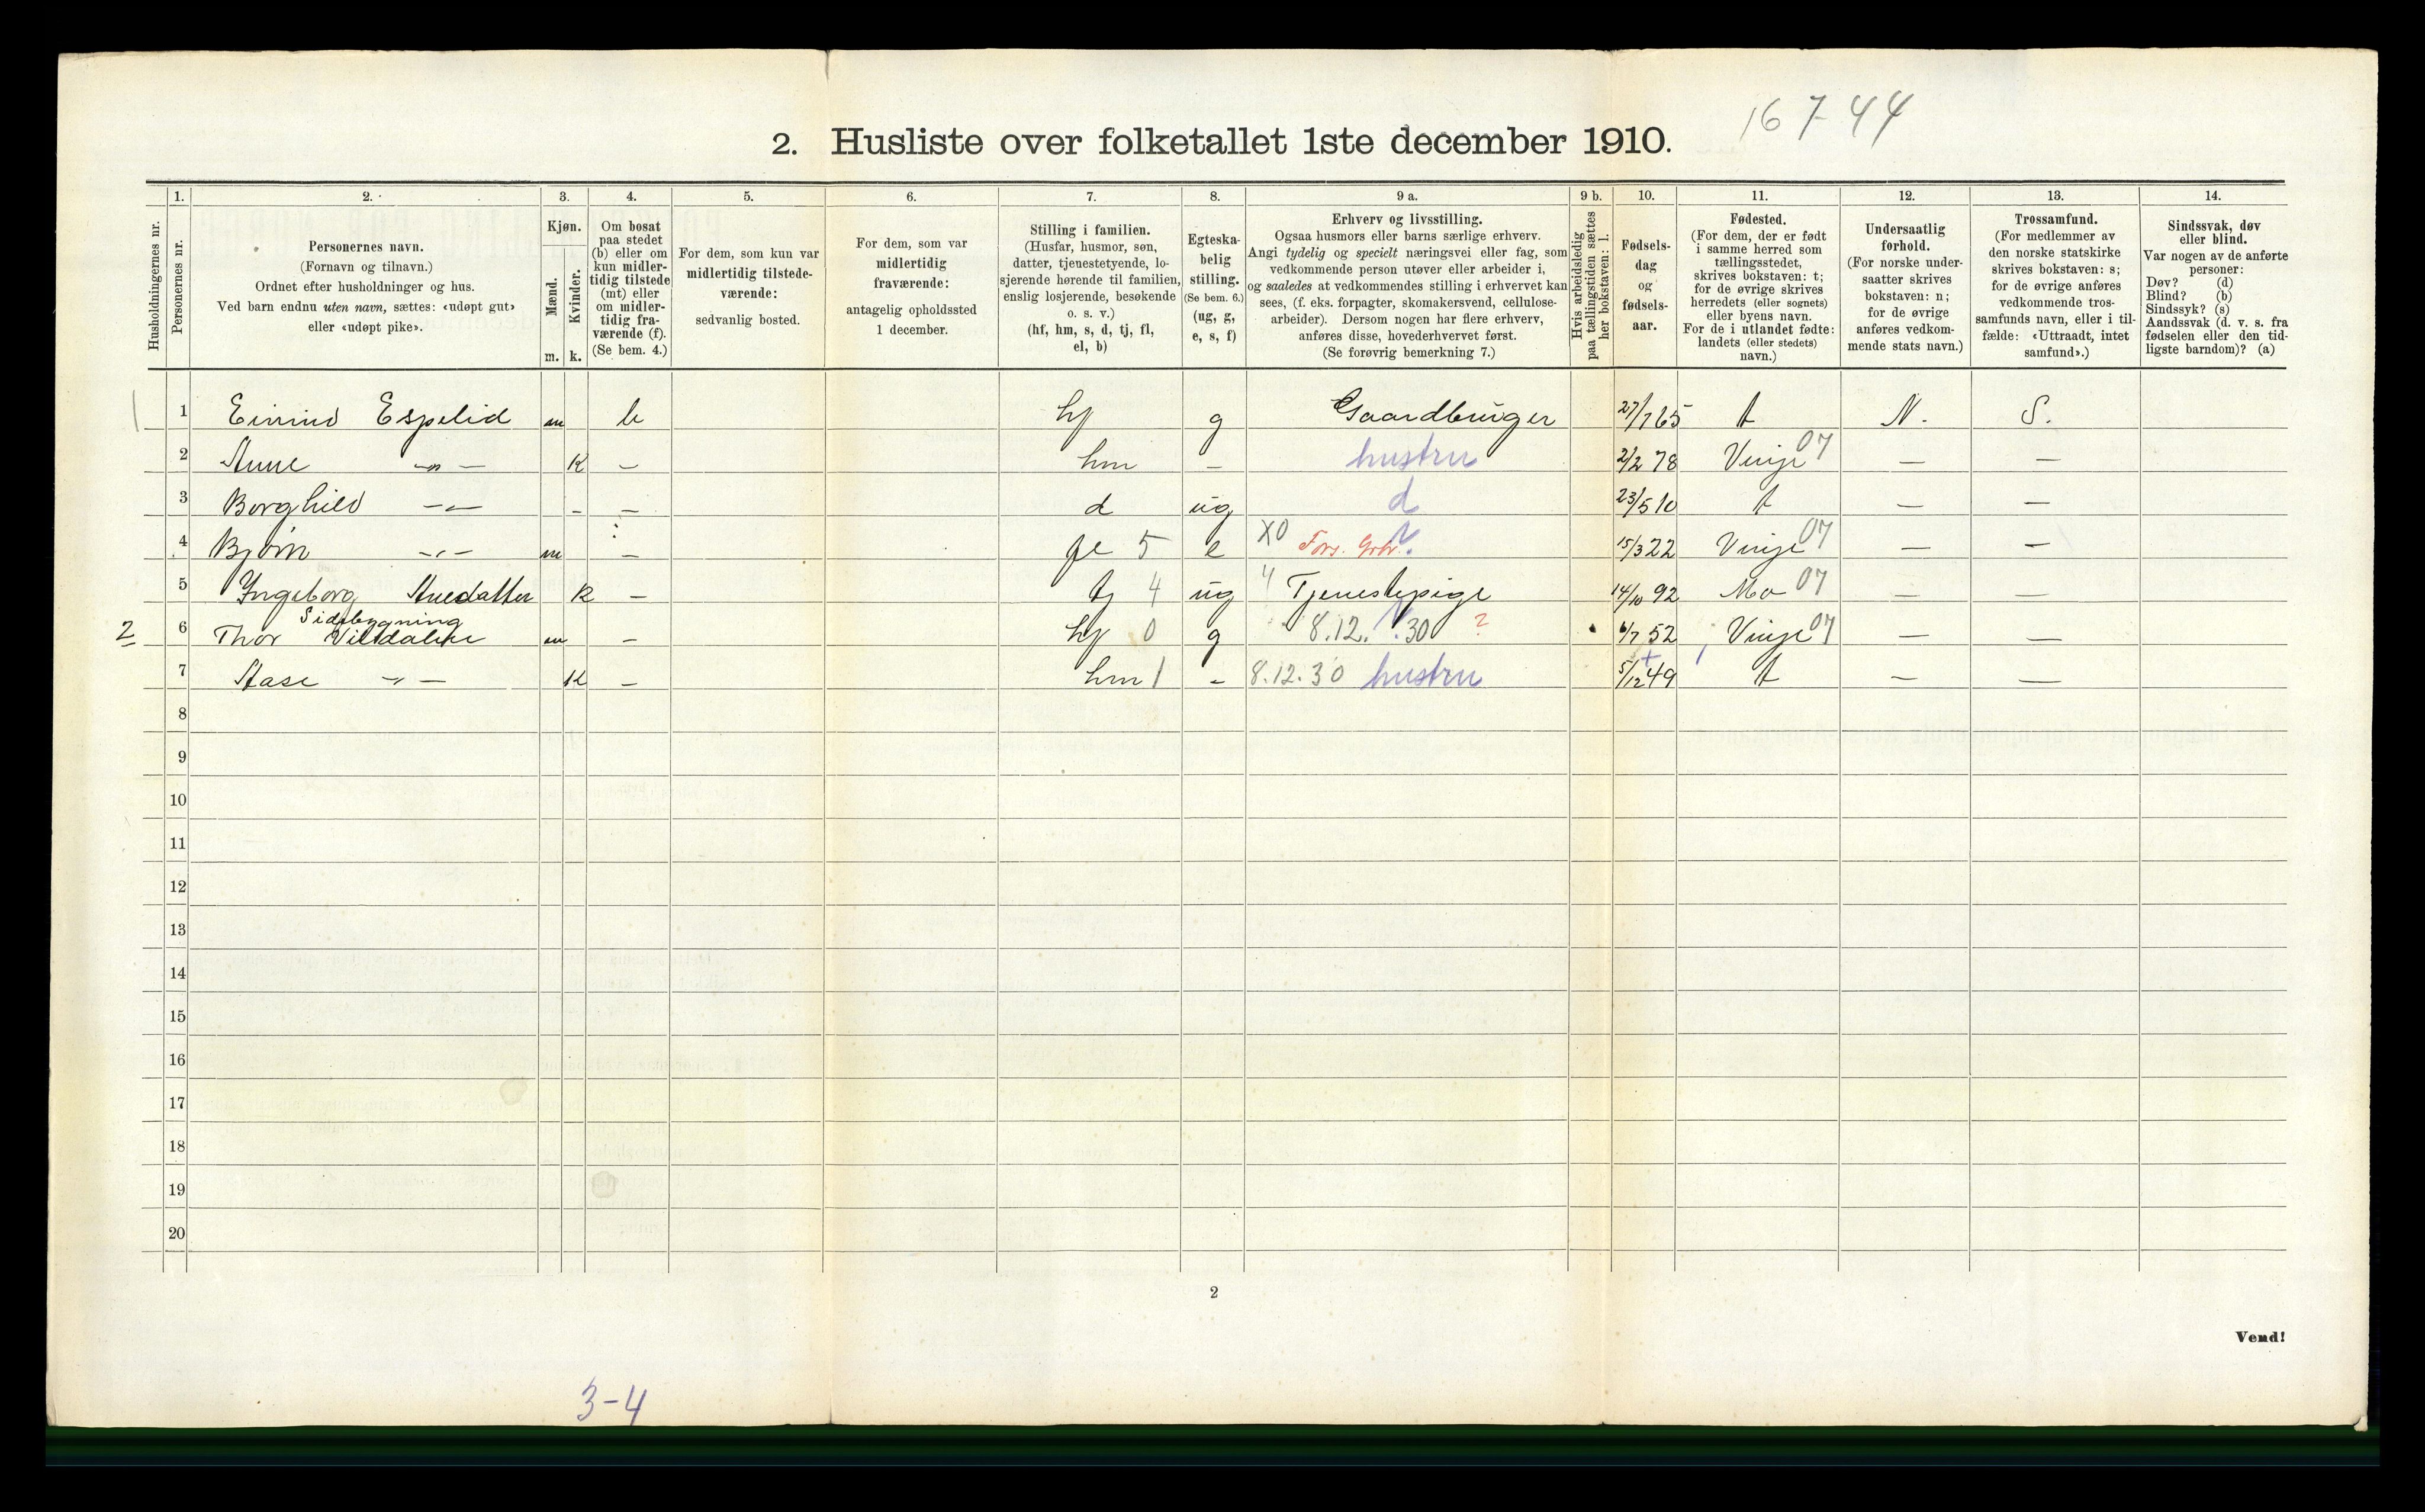 16 7-44
2. Husliste over folketallet 1ste december 1910.
Husholdningernes nr.
1.
Personernes nr.
2.
Personernes navn.
(Fornavn og tilnavn.)
Ordnet efter husholdninger og hus.
Ved barn endnu uten navn, sættes: «udøpt gut»
eller «udøpt pike».
3.
Kjøn.
Mænd.
Kvinder.
m. k.
4.
Om bosat
paa stedet
(b) eller om
kun midler-
tidig tilstede
(mt) eller
om midler-
tidig fra-
værende (f).
(Se bem. 4.)
5.
For dem, som kun var
midlertidig tilstede-
værende:
sedvanlig bosted.
6.
For dem, som var
midlertidig
fraværende:
antagelig opholdssted
1 december.
7.
Stilling i familien.
(Husfar, husmor, søn,
datter, tjenestetyende, lo-
sjerende hørende til familien,
enslig losjerende, besøkende
o. s. v.)
(hf, hm, s, d, tj, fl,
el, b)
8.
Egteska-
belig
stilling.
(Se bem. 6.)
(ug, g,
e, s, f)
9 a.
Erhverv og livsstilling.
Ogsaa husmors eller barns særlige erhverv.
Angi tydelig og specielt næringsvei eller fag, som
vedkommende person utøver eller arbeider i,
og saaledes at vedkommendes stilling i erhvervet kan
sees, (f. eks. forpagter, skomakersvend, cellulose-
arbeider). Dersom nogen har flere erhverv,
anføres disse, hovederhvervet først.
(Se forøvrig bemerkning 7.)
9 b.
Hvis arbeidsledig
paa tællingstiden sættes
her bokstaven: l.
10.
Fødsels-
dag
og
fødsels-
aar.
11.
Fødested.
(For dem, der er født
i samme herred som
tællingsstedet,
skrives bokstaven: t;
for de øvrige skrives
herredets (eller sognets)
eller byens navn.
For de i utlandet fødte:
landets (eller stedets)
navn.)
12.
Undersaatlig
forhold.
(For norske under-
saatter skrives
bokstaven: n;
for de øvrige
anføres vedkom-
mende stats navn.)
13.
Trossamfund.
(For medlemmer av
den norske statskirke
skrives bokstaven: s;
for de øvrige anføres
vedkommende tros-
samfunds navn, eller i til-
fælde: «Uttraadt, intet
samfund».)
14.
Sindssvak, døv
eller blind.
Var nogen av de anførte
personer:
Døv? (d)
Blind? (b)
Sindssyk? (s)
Aandssvak (d. v. s. fra
fødselen eller den tid-
ligste barndom)? (a)
1 1 Eivind Espelid m b hf g Gaardbruger 27/7 65 t N. S.
2 Anne -"- K - hm - hustru 2/2 78 Vinje 07 - -
3 Borghild -"- - - d ug d 23/5 10 t - -
4 Bjørn -"- m - fl 5 e X0 Fors. Grbr. 15/3 22 Vinje 07 - -
5 Ingeborg Auedatter K - tj 4 ug 4 Tjenestepige 14/10 92 Mo 07 - -
Sidebygning
2 6 Thor m - hf 0 g 8.12. .30 ? 6/7 52 Vinje 07 - -
7 Aase -"- K - hm 1 - 8.12.30 hustru 5/12 49 t - -
8
9
10
11
12
13
14
15
16
17
18
19
20
2
Vend!
3-4